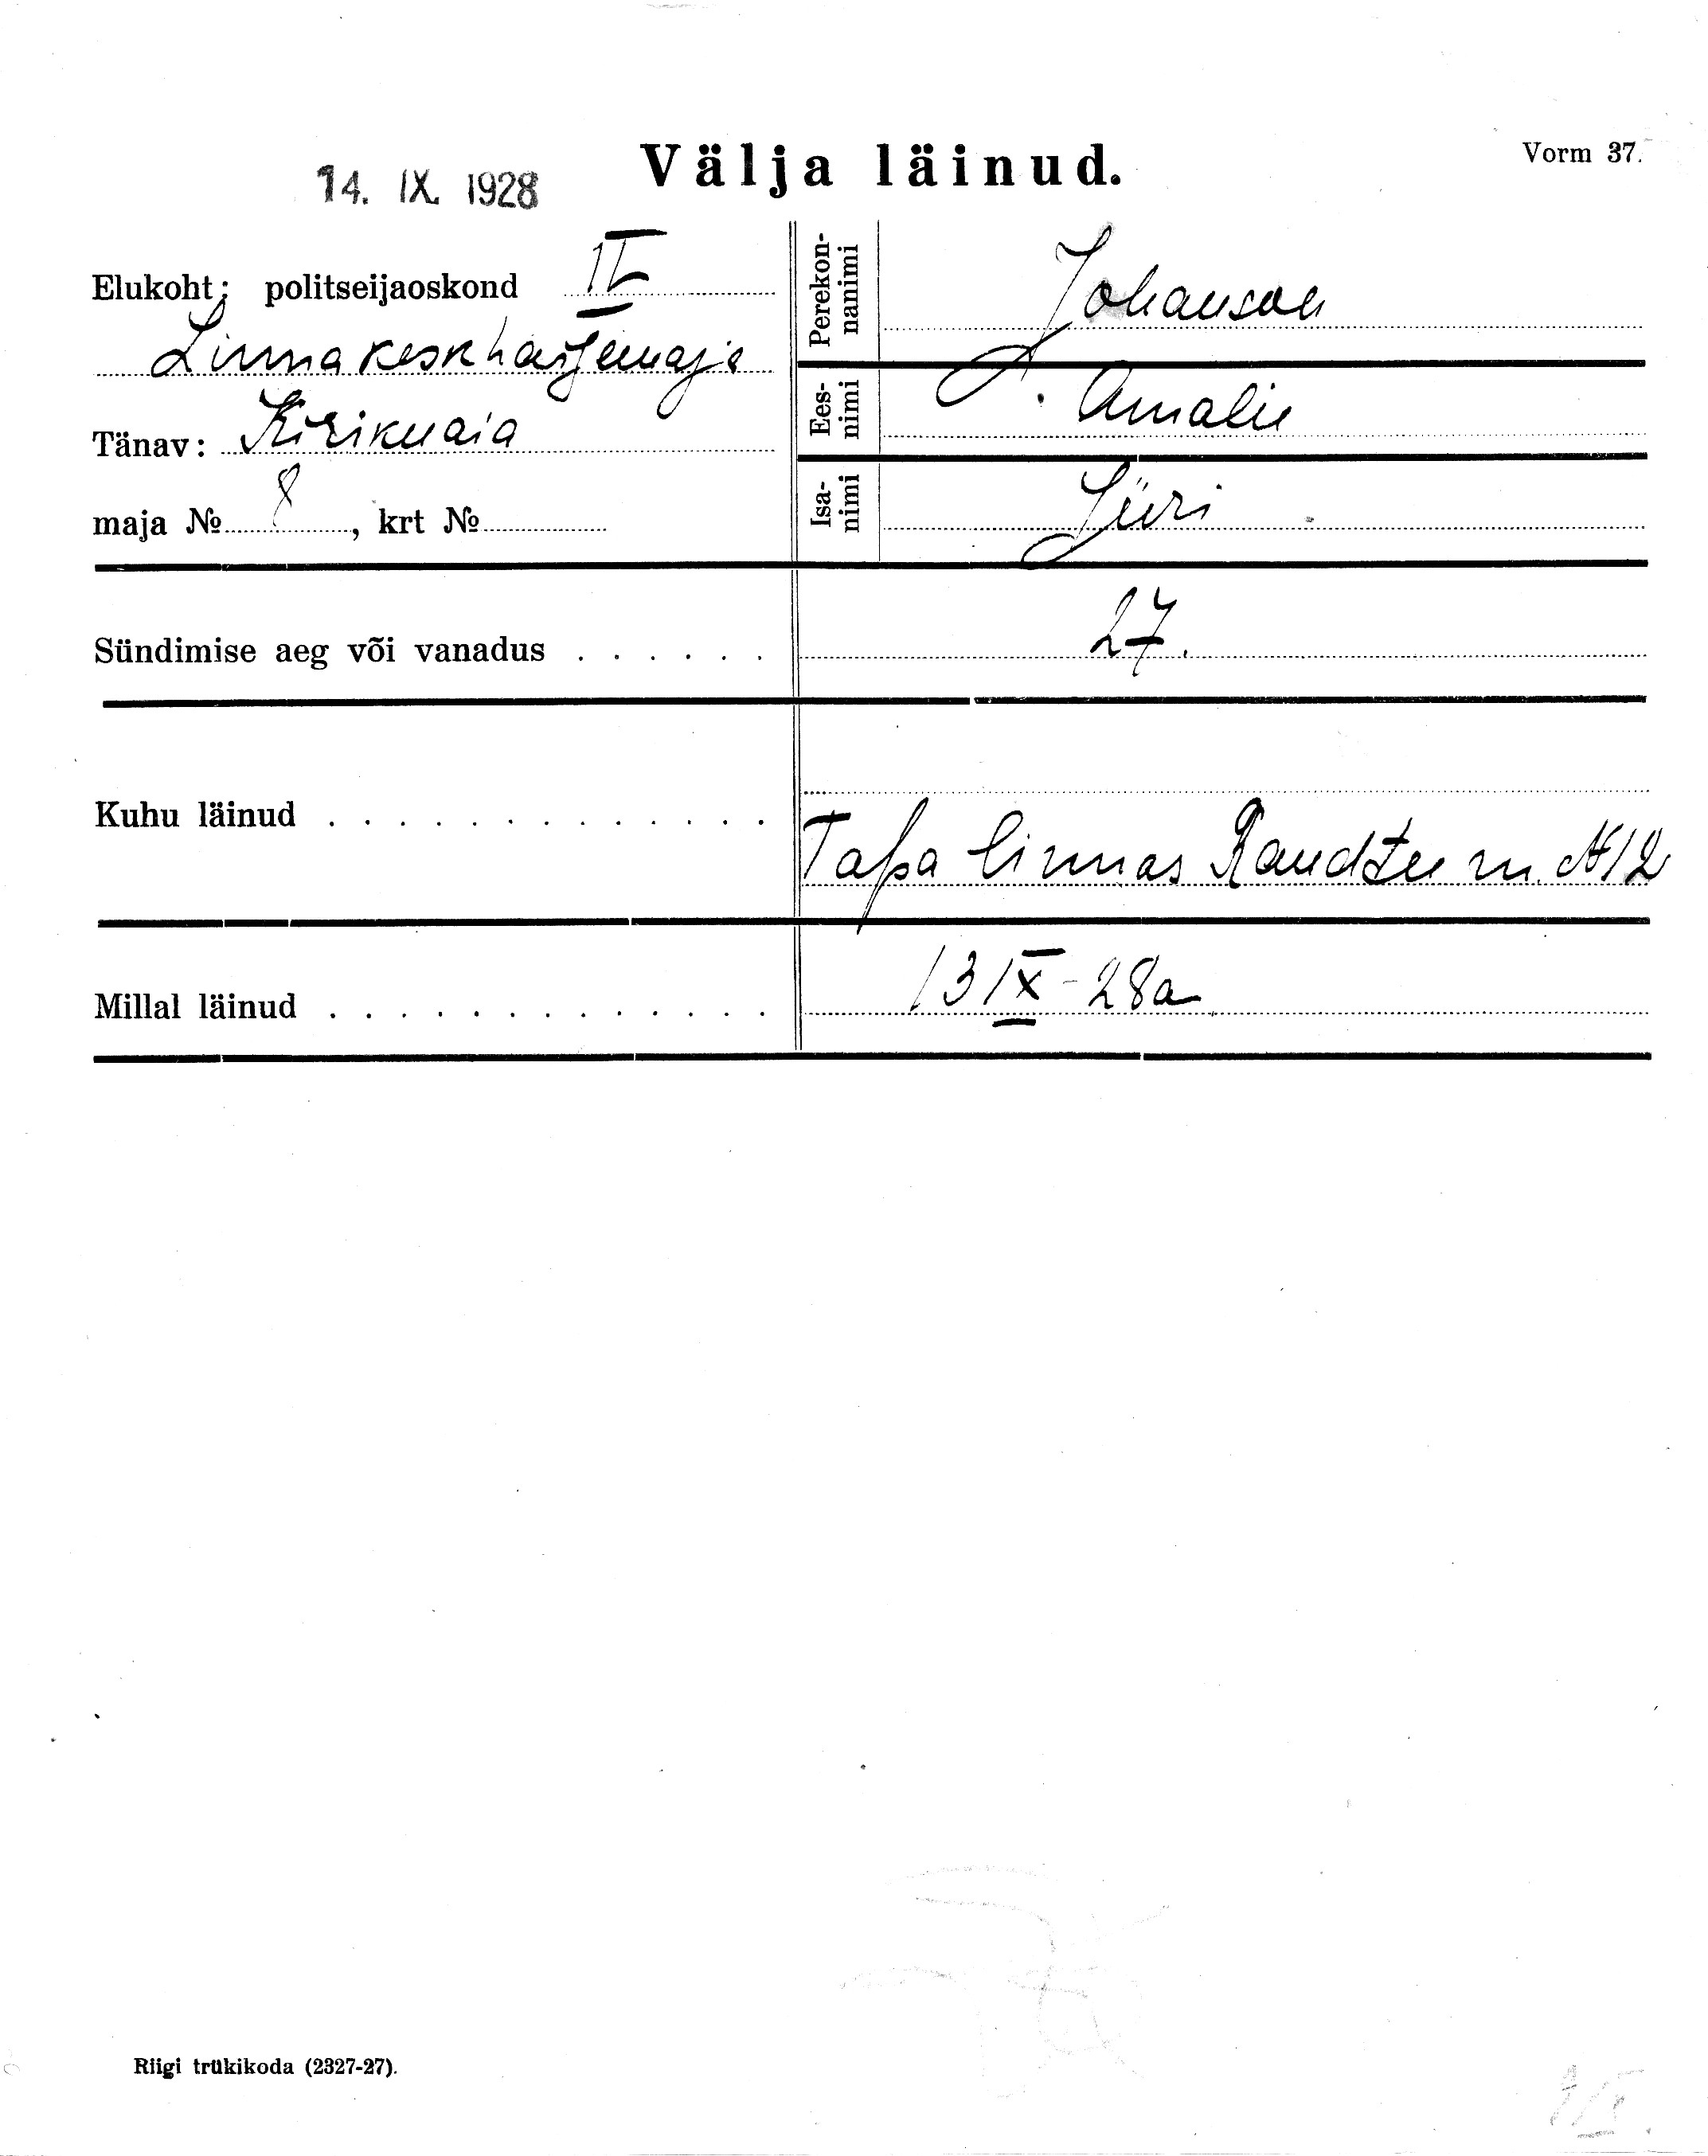 Vorm 37.
Välja läinud.
14. IX. 1928
Elukoht: politseijaoskond II
Linna keskhaigemaja
Tänav: Kirikuaia
maja № 8, krt №
Perekon-
nanimi
Johanson
Ees-
nimi
Amalie
Isa-
nimi
Jüri
Sündimise aeg või vanadus . . . . . . 27.
Kuhu läinud . . . . . . . . . . . . . Tapa linnas Raudtee m. №12
Millal läinud . . . . . . . . . . . . . 13 IX - 28a
Riigi trükikoda (2327-27).